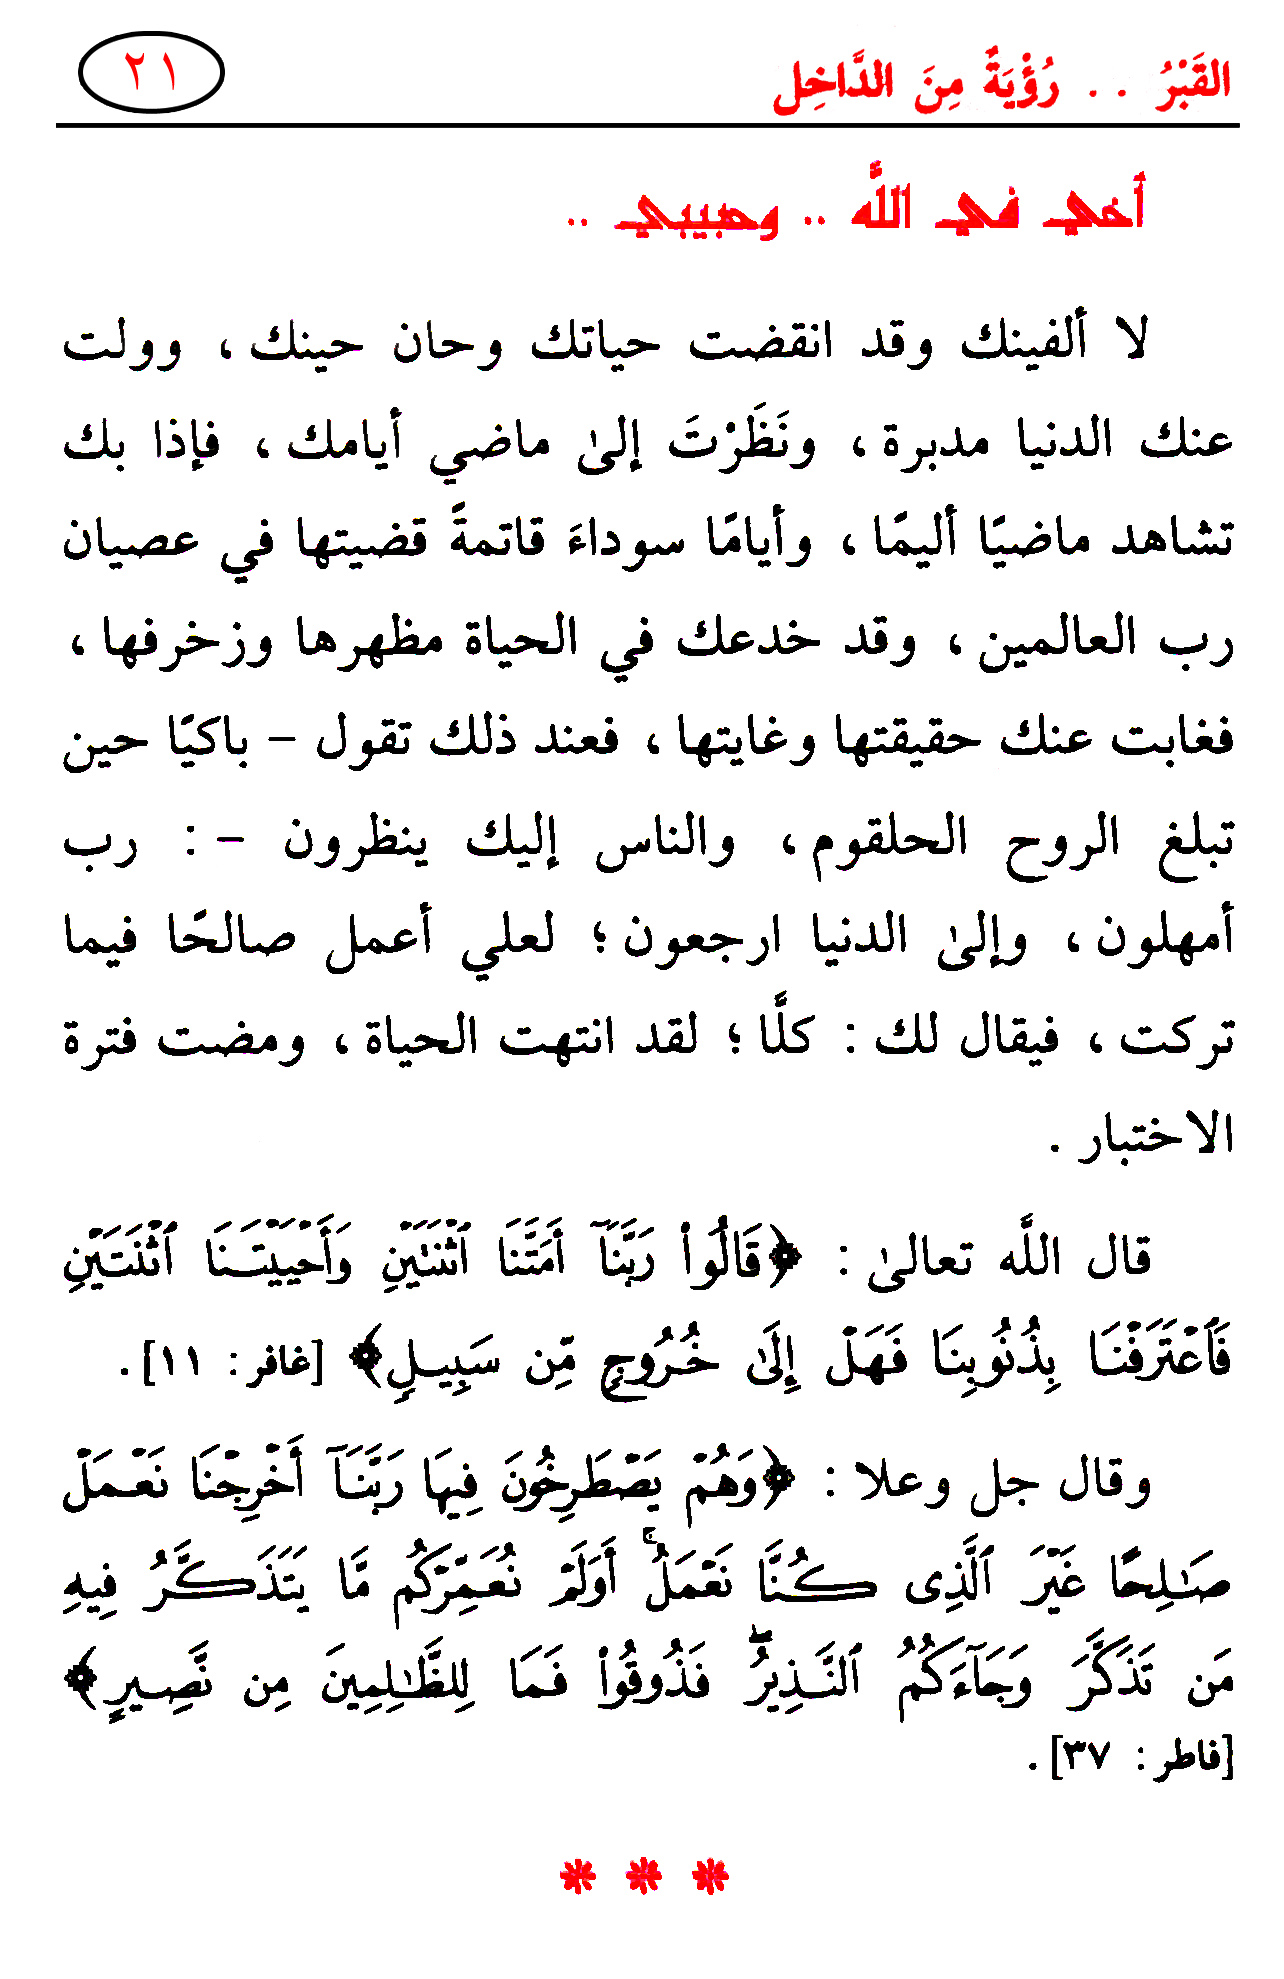 القَبْرُ . . رُؤْيَةٌ مِنَ الدَّاخِل
٢١
أخي في اللَّه .. وحبيبي ..
لا ألفينك وقد انقضت حياتك وحان حينك ، وولت
عنك الدنيا مدبرة ، ونَظَرْتَ إلىٰ ماضي أيامك ، فإذا بك
تشاهد ماضيًا أليمًا ، وأيامًا سوداءَ قاتمةً قضيتها في عصيان
رب العالمين ، وقد خدعك في الحياة مظهرها وزخرفها ،
فغابت عنك حقيقتها وغايتها ، فعند ذلك تقول – باكيًا حين
تبلغ الروح الحلقوم ، والناس إليك ينظرون – : رب
أمهلون ، وإلىٰ الدنيا ارجعون ؛ لعلي أعمل صالحًا فيما
تركت ، فيقال لك : كلَّا ؛ لقد انتهت الحياة ، ومضت فترة
الاختبار .
قال اللَّه تعالىٰ : ﴿قَالُواْ رَبَّنَآ أَمَتَّنَا ٱثْنَتَيْنِ وَأَحْيَيْتَـنَا ٱثْنَتَيْنِ
فَٱعْتَرَفْنَـا بِذُنُوبِنَا فَهَلْ إِلَىٰ خُـرُوجٍ مِّن سَبِيـلٍ﴾ [غافر : ١١] .
وقال جل وعلا : ﴿وَهُمْ يَصْطَرِخُونَ فِيهَا رَبَّنَـآ أَخْرِجْنَا نَعْـمَلْ
صَـٰلِحًا غَيْرَ ٱلَّذِى كُـنَّا نَعْمَلُۚ أَوَلَمْ نُعَـمِّرْكُم مَّا يَتَذَكَّـرُ فِيهِ
مَن تَذَكَّرَ وَجَآءَكُمُ ٱلنَّـذِيرُۖ فَذُوقُواْ فَمَا لِلظَّـٰلِمِينَ مِن نَّصِـيرٍ﴾
[فاطر : ٣٧] .
* * *